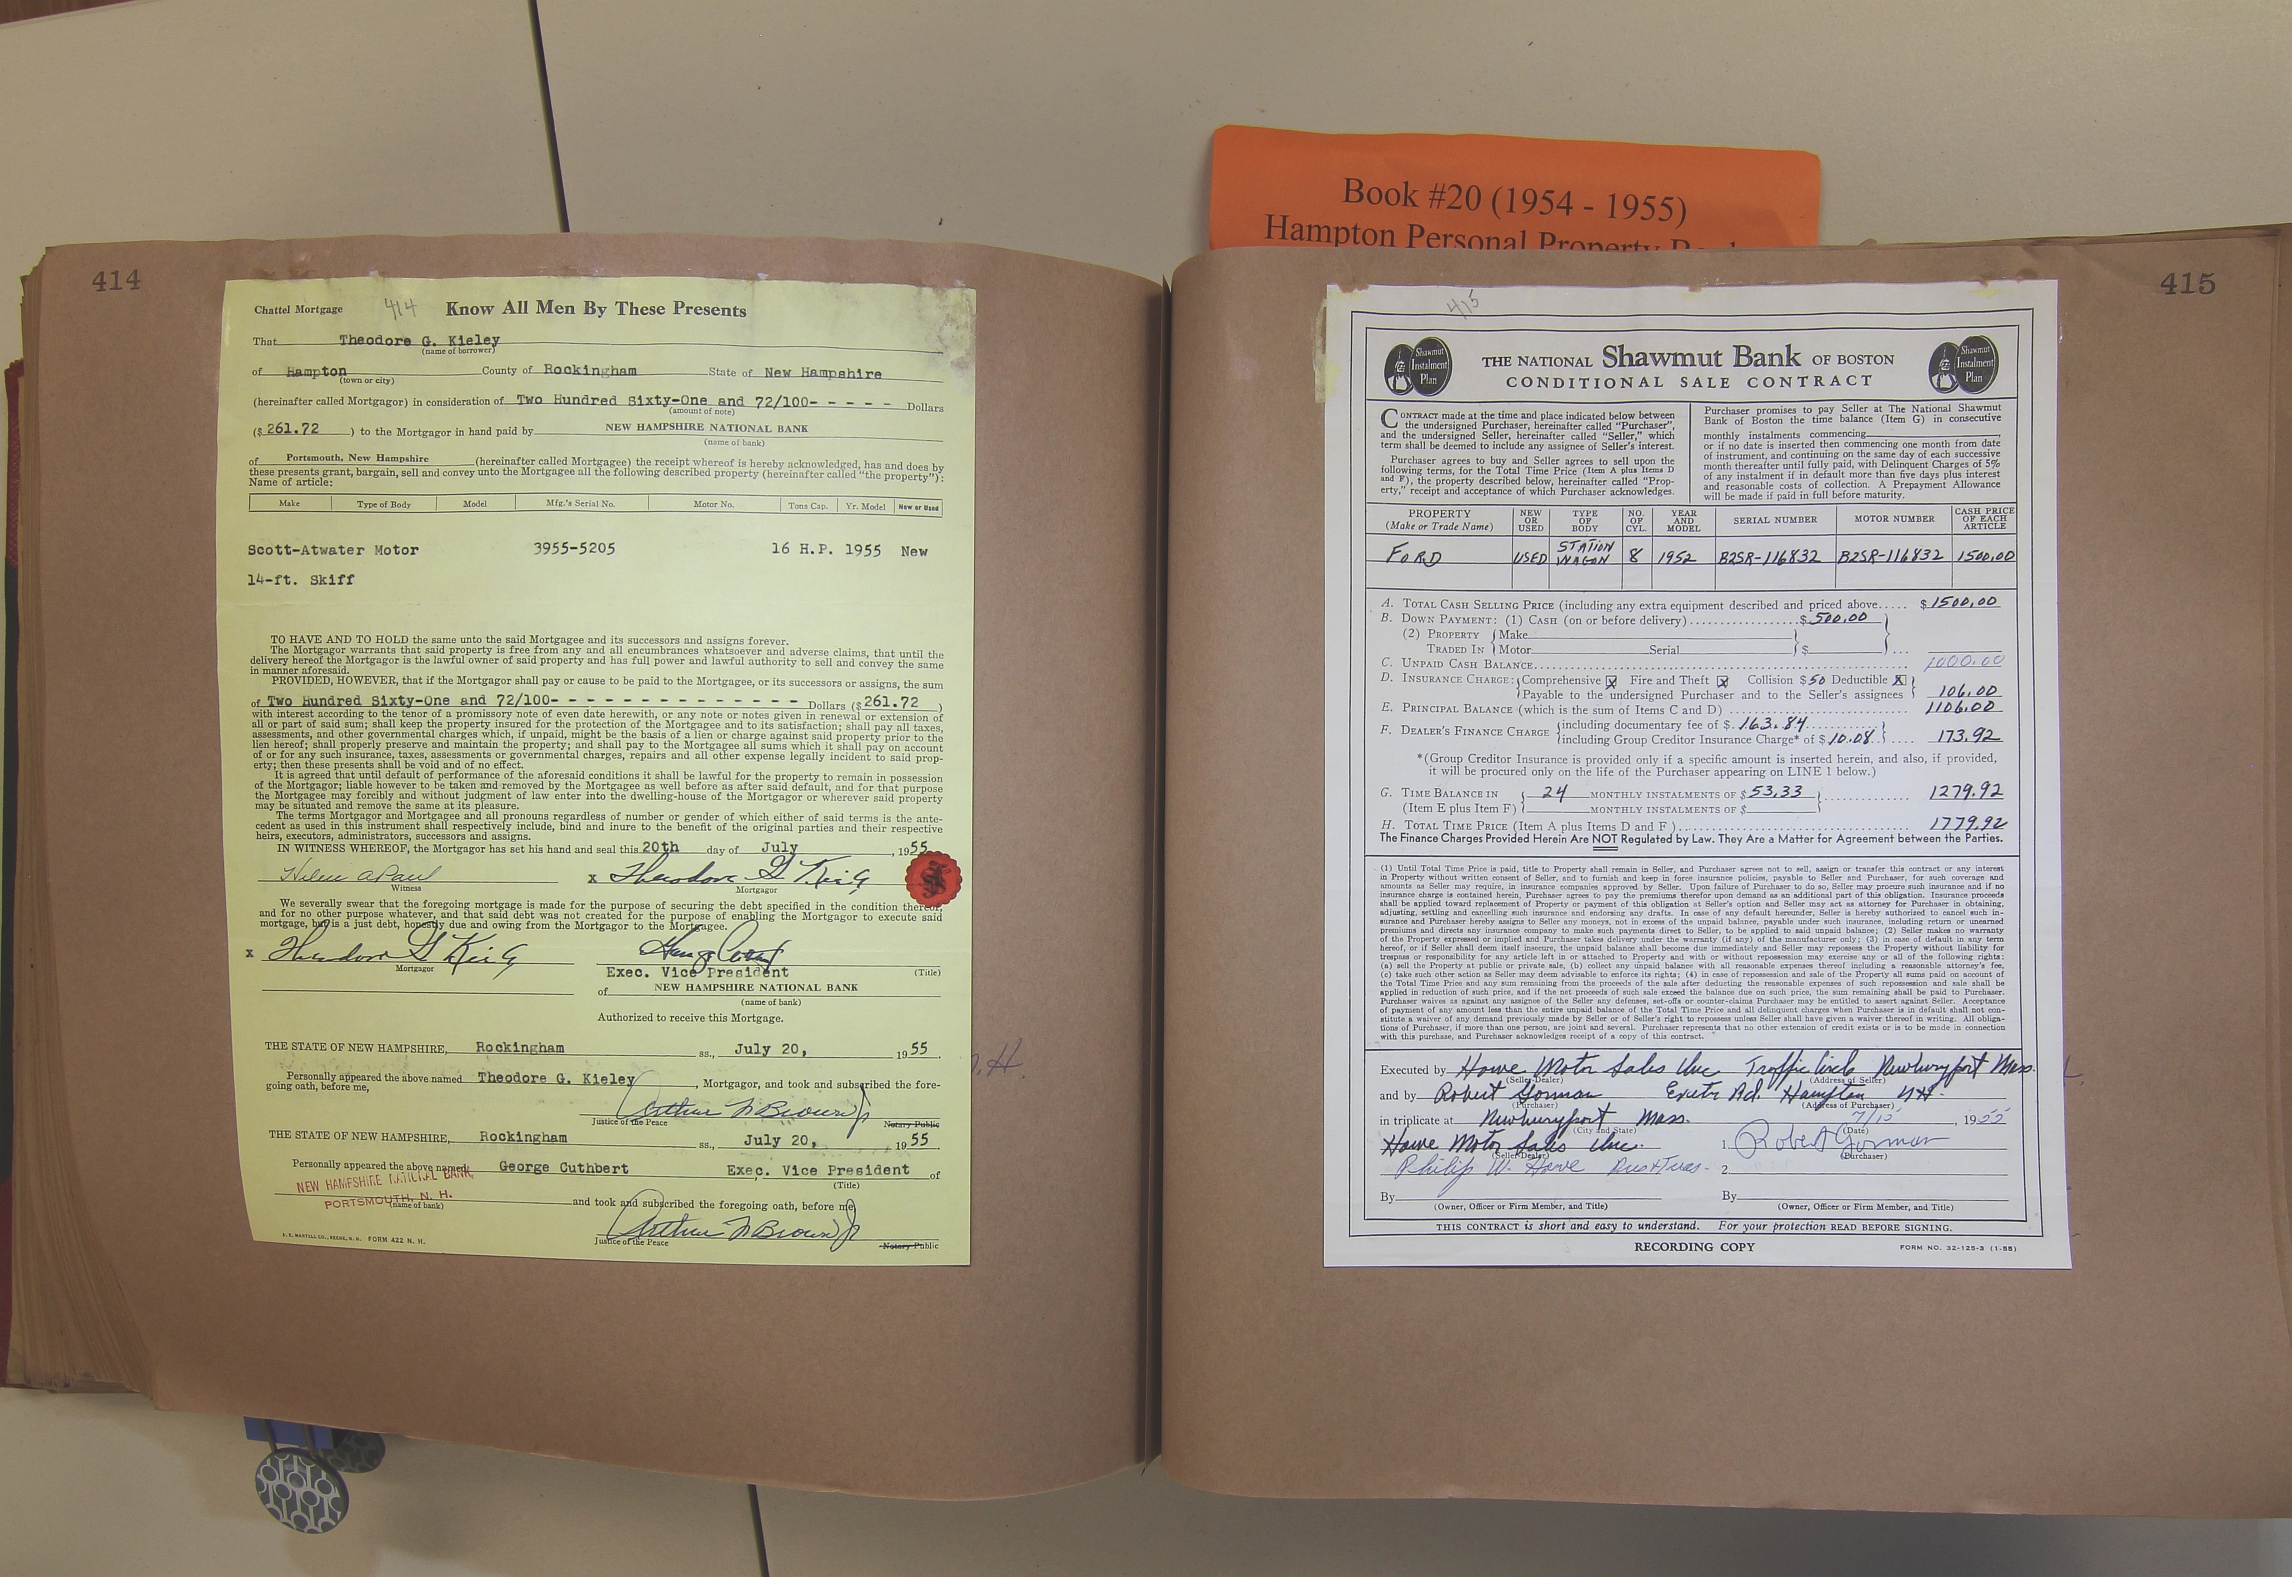 Book #20 (1954 - 1955)
Hampton Personal Property
414
Chattel Mortgage 414 Know All Men By These Presents
That Theodore G. Kieley
(name of borrower)
of Hampton County of Rockingham State of New Hampshire
(town or city)
(hereinafter called Mortgagor) in consideration of Two Hundred Sixty-One and 72/100- - - - - Dollars
(amount of note)
($ 261.72 ) to the Mortgagor in hand paid by NEW HAMPSHIRE NATIONAL BANK
(name of bank)
of Portsmouth, New Hampshire (hereinafter called Mortgagee) the receipt whereof is hereby acknowledged, has and does by
these presents grant, bargain, sell and convey unto the Mortgagee all the following described property (hereinafter called "the property"):
Name of article:
Make Type of Body Model Mfg.'s Serial No. Motor No. Tons Cap. Yr. Model New or Used
Scott-Atwater Motor 3955-5205 16 H.P. 1955 New
14-ft. Skiff
TO HAVE AND TO HOLD the same unto the said Mortgagee and its successors and assigns forever.
The Mortgagor warrants that said property is free from any and all encumbrances whatsoever and adverse claims, that until the
delivery hereof the Mortgagor is the lawful owner of said property and has full power and lawful authority to sell and convey the same
in manner aforesaid.
PROVIDED, HOWEVER, that if the Mortgagor shall pay or cause to be paid to the Mortgagee, or its successors or assigns, the sum
of Two Hundred Sixty-One and 72/100- - - - - - - - - - - - - - Dollars ($ 261.72 )
with interest according to the tenor of a promissory note of even date herewith, or any note or notes given in renewal or extension of
all or part of said sum; shall keep the property insured for protection of the Mortgagee and to its satisfaction; shall pay all taxes,
assessments, and other governmental charges which, if unpaid, might be the basis of a lien or charge against said property prior to the
lien hereof; shall properly preserve and maintain the property; and shall pay to the Mortgagee all sums which it shall pay on account
of or for any such insurance, taxes, assessments or governmental charges, repairs and all other expense legally incident to said prop-
erty; then these presents shall be void and of no effect.
It is agreed that until default of performance of the aforesaid conditions it shall be lawful for the property to remain in possession
of the Mortgagor; liable however to be taken and removed by the Mortgagee as well before as after said default, and for that purpose
the Mortgagee may forcibly and without judgment of law enter into the dwelling-house of the Mortgagor or wherever said property
may be situated and remove the same at its pleasure.
The terms Mortgagor and Mortgagee and all pronouns regardless of number or gender of which either of said terms is the ante-
cedent as used in this instrument shall respectively include, bind and inure to the benefit of the original parties and their respective
heirs, executors, administrators, successors and assigns.
IN WITNESS WHEREOF, the Mortgagor has set his hand and seal this 20th day of July , 1955
Helen A Paul x Theodore G Kieley
Witness Mortgagor
We severally swear that the foregoing mortgage is made for the purpose of securing the debt specified in the condition thereof,
and for no other purpose whatever, and that said debt was not created for the purpose of enabling the Mortgagor to execute said
mortgage, but is a just debt, honestly due and owing from the Mortgagor to the Mortgagee.
x Theodore G Kieley George Cuthbert
Mortgagor
Exec. Vice President (Title)
of NEW HAMPSHIRE NATIONAL BANK
(name of bank)
Authorized to receive this Mortgage.
THE STATE OF NEW HAMPSHIRE, Rockingham ss., July 20, 1955.
Personally appeared the above named Theodore G. Kieley , Mortgagor, and took and subscribed the fore-
going oath, before me,
Arthur N Brown Jr
Justice of the Peace Notary Public
THE STATE OF NEW HAMPSHIRE, Rockingham ss., July 20, 1955
Personally appeared the above named George Cuthbert Exec. Vice President of
(Title)
NEW HAMPSHIRE NATIONAL BANK
PORTSMOUTH, N. H.
(name of bank)
and took and subscribed the foregoing oath, before me
Arthur N Brown Jr
Justice of the Peace Notary Public
A. E. MARTELL CO., KEENE, N. H. FORM 422 N. H.
H.
415
415
Shawmut Instalment Plan
THE NATIONAL Shawmut Bank OF BOSTON
CONDITIONAL SALE CONTRACT
Shawmut Instalment Plan
CONTRACT made at the time and place indicated below between
the undersigned Purchaser, hereinafter called "Purchaser",
and the undersigned Seller, hereinafter called "Seller," which
term shall be deemed to include any assignee of Seller's interest.
Purchaser agrees to buy and Seller agrees to sell upon the
following terms, for the Total Time Price (Item A plus Items D
and F), the property described below, hereinafter called "Prop-
erty," receipt and acceptance of which Purchaser acknowledges.
Purchaser promises to pay Seller at The National Shawmut
Bank of Boston the time balance (Item G) in consecutive
monthly instalments commencing ,
or if no date is inserted then commencing one month from date
of instrument, and continuing on the same day of each successive
month thereafter until fully paid, with Delinquent Charges of 5%
of any instalment if in default more than five days plus interest
and reasonable costs of collection. A Prepayment Allowance
will be made if paid in full before maturity.
PROPERTY (Make or Trade Name) NEW OR USED TYPE OF BODY NO. OF CYL. YEAR AND MODEL SERIAL NUMBER MOTOR NUMBER CASH PRICE OF EACH ARTICLE
FORD USED STATION WAGON 8 1952 B2SR-116832 B2SR-116832 1500.00
A. TOTAL CASH SELLING PRICE (including any extra equipment described and priced above..... $1500.00
B. DOWN PAYMENT: (1) CASH (on or before delivery)..................$ 500.00
(2) PROPERTY Make
TRADED IN Motor Serial $ ...
C. UNPAID CASH BALANCE.................... 1000.00
D. INSURANCE CHARGE: Comprehensive X Fire and Theft X Collision $50 Deductible X
Payable to the undersigned Purchaser and to the Seller's assignees 106.00
E. PRINCIPAL BALANCE (which is the sum of Items C and D) .................... 1106.00
F. DEALER'S FINANCE CHARGE including documentary fee of $ 163.84
including Group Creditor Insurance Charge* of $ 10.08 .... 173.92
*(Group Creditor Insurance is provided only if a specific amount is inserted herein, and also, if provided,
it will be procured only on the life of the Purchaser appearing on LINE 1 below.)
G. TIME BALANCE IN 24 MONTHLY INSTALMENTS OF $53.33 ............ 1279.92
(Item E plus Item F) MONTHLY INSTALMENTS OF $
H. TOTAL TIME PRICE (Item A plus Items D and F).................... 1779.92
The Finance Charges Provided Herein Are NOT Regulated by Law. They Are a Matter for Agreement between the Parties.
(1) Until Total Time Price is paid, title to Property shall remain in Seller, and Purchaser agrees not to sell, assign or transfer this contract or any interest
in Property without written consent of Seller, and to furnish and keep in force insurance policies, payable to Seller and Purchaser, for such coverage and
amounts as Seller may require, in insurance companies approved by Seller. Upon failure of Purchaser to do so, Seller may procure such insurance and if no
insurance charge is contained herein, Purchaser agrees to pay the premiums therefor upon demand as an additional part of this obligation. Insurance proceeds
shall be applied toward replacement of Property or payment of this obligation at Seller's option and Seller may act as attorney for Purchaser in obtaining,
adjusting, settling and cancelling such insurance and endorsing any drafts. In case of any default hereunder, Seller is hereby authorized to cancel such in-
surance and Purchaser hereby assigns to Seller any moneys, not in excess of the unpaid balance, payable under such insurance, including return or unearned
premiums and directs any insurance company to make such payments direct to Seller, to be applied to said unpaid balance; (2) Seller makes no warranty
of the Property expressed or implied and Purchaser takes delivery under the warranty (if any) of the manufacturer only; (3) in case of default in any term
hereof, or if Seller shall deem itself insecure, the unpaid balance shall become due immediately and Seller may repossess the Property without liability for
trespass or responsibility for any article left in or attached to Property and with or without repossession may exercise any or all of the following rights:
(a) sell the Property at public or private sale, (b) collect any unpaid balance with all reasonable expenses thereof including a reasonable attorney's fee,
(c) take such other action as Seller may deem advisable to enforce its rights; (4) in case of repossession and sale of the Property all sums paid on account of
the Total Time Price and any sum remaining from the proceeds of the sale after deducting the reasonable expenses of such repossession and sale shall be
applied in reduction of such price, and if the net proceeds of such sale exceed the balance due on such price, the sum remaining shall be paid to Purchaser.
Purchaser waives as against any assignee of the Seller any defenses, set-offs or counter-claims Purchaser may be entitled to assert against Seller. Acceptance
of payment of any amount less than the entire unpaid balance of the Total Time Price and all delinquent charges when Purchaser is in default shall not con-
stitute a waiver of any demand previously made by Seller or of Seller's right to repossess unless Seller shall have given a waiver thereof in writing. All obliga-
tions of Purchaser, if more than one person, are joint and several. Purchaser represents that no other extension of credit exists or is to be made in connection
with this purchase, and Purchaser acknowledges receipt of a copy of this contract.
Executed by Howe Motor Sales Inc Traffic Circle Newburyport Mass.
(Seller-Dealer) (Address of Seller)
and by Robert Gorman Exeter Rd. Hampton N.H.
(Purchaser) (Address of Purchaser)
in triplicate at Newburyport Mass. 7/15 , 1955
(City and State) (Date)
Howe Motor Sales Inc. 1. Robert Gorman
(Seller-Dealer) (Purchaser)
Philip W. Howe Pres+Treas. 2.
By By
(Owner, Officer or Firm Member, and Title) (Owner, Officer or Firm Member, and Title)
THIS CONTRACT is short and easy to understand. For your protection READ BEFORE SIGNING.
RECORDING COPY FORM NO. 32-125-3 (1-55)